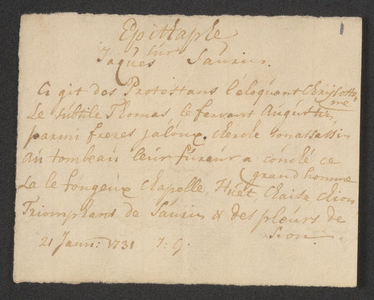 1
Epithaphe
sur
Jaques Saurin.
Ci git des Protestans l'éloquent Chrisosto
me
Le subtile Thomas, le fervant Augustin,
parmi freres jaloux. cherche son assassin
au tombeau leur fureur a conduè ce
grand homme
La le fougeux Chapelle, Huèt, Chaise, Chion
Triomphans de Saurin & des pleurs de
Sion.
21 Janv: 1731 J: G.